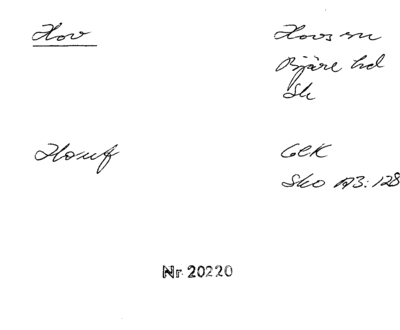 Hov
Hovs sn
Bjäre hd
Sk
Houf
GCK
Sko A3:128
Nr 20220